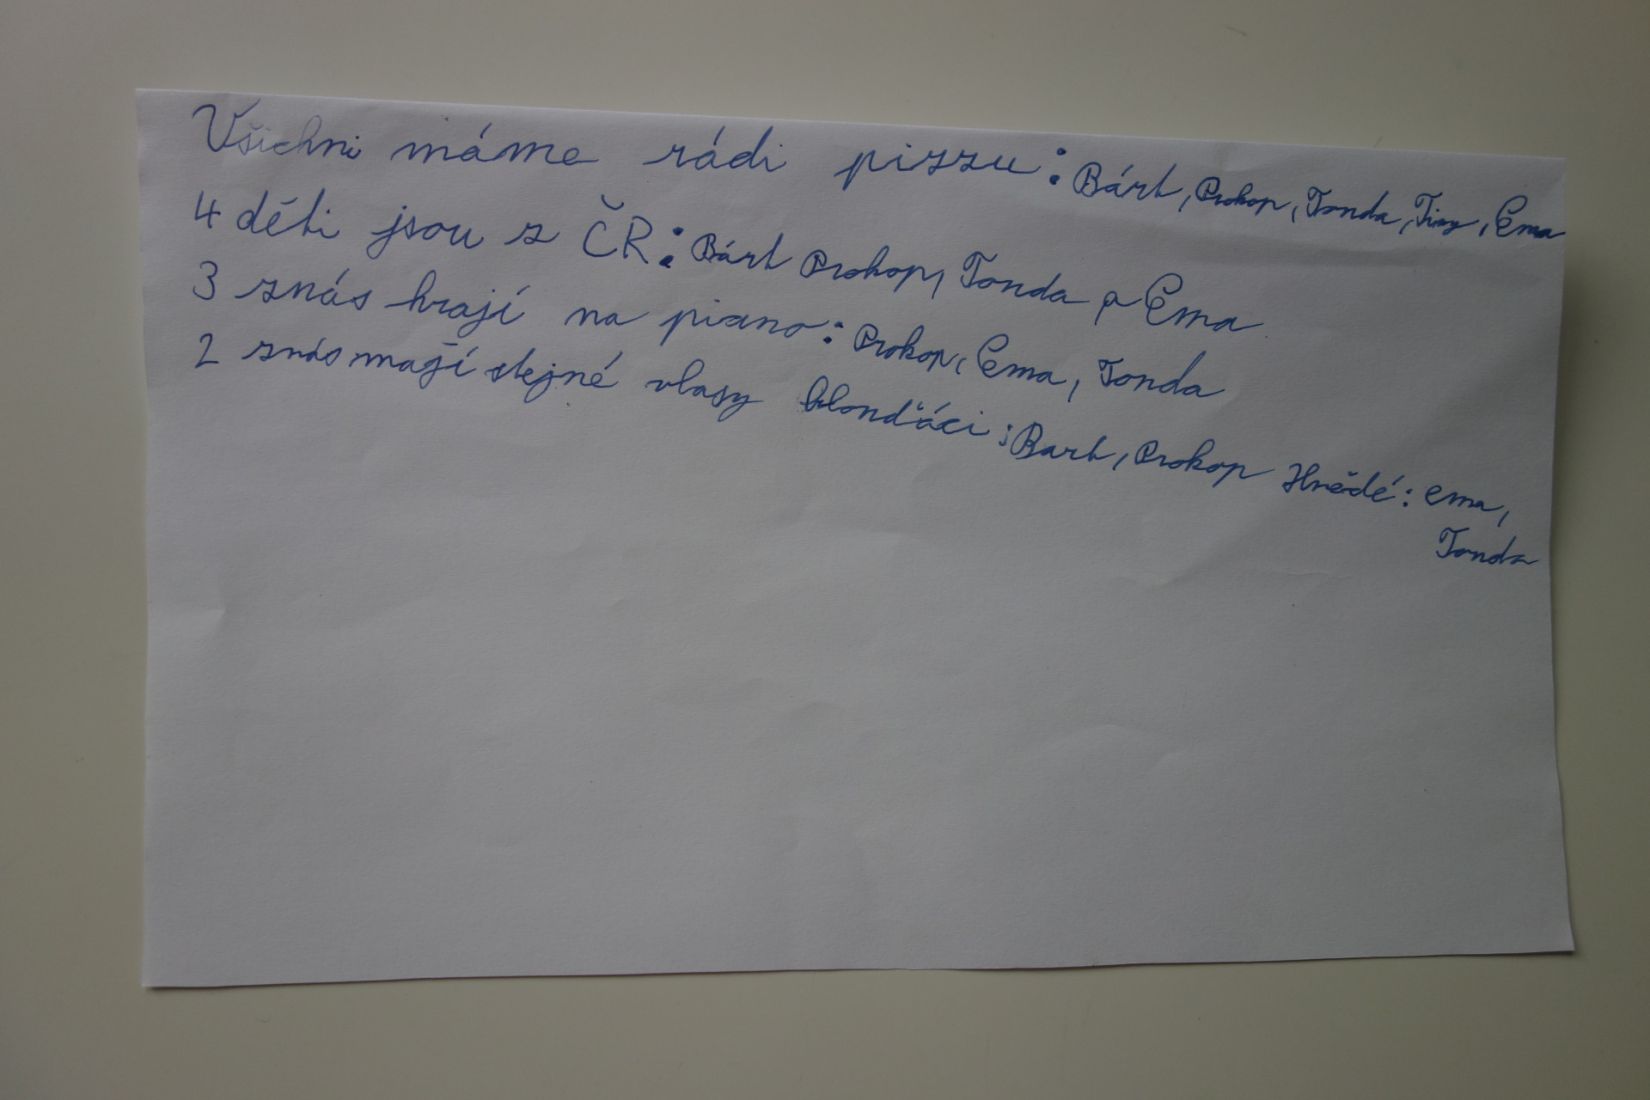 Všichni máme rádi pizzu: Bárt, Prokop, Tonda, Timy, Ema
4 děti jsou z ČR: Bárt Prokop, Tonda a Ema
3 znás hrají na piano: Prokop, Ema, Tonda
2 znás mají stejné vlasy blonďáci: Bart, Prokop Hnědé: ema,
Tonda